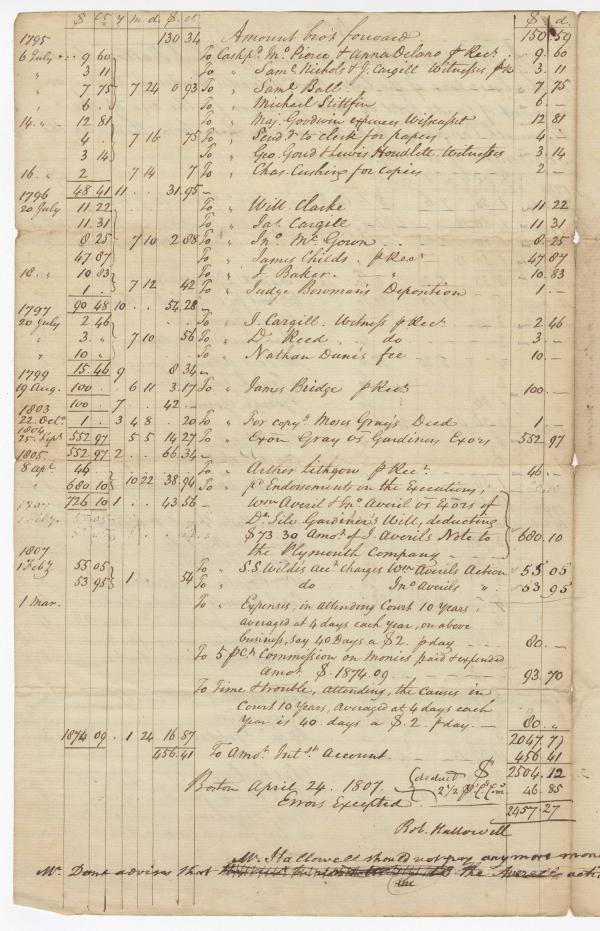 $ cts y m. d. $. cts $ d.
1795 130 34 Amount bro't forward 150 59
6 July 9 60 To Cash pd. Jno Pierce & Anna Delano p Rect. 9 60
" 3 11 To " Saml. Nichols & J. Cargill Witnesses p R 3 11
" 7 75 7 24 0 93 To " Saml. Ball 7 75
" 6 . To " Michael Stilfin 6 . –
14 " 12 81 To " Maj. Goodwin expences Wiscasset 12 81
4 . 7 16 75 To " Send. to clerk for papers 4 . –
3 14 To " Geo. Goud & Lewis Houdlett. Witnesses 3 14
16 " 2 7 14 7 To " Chas. Cushing for copies 2 –
1796 48 41 11 . . 31.95 –
20 July 11.22 To " Will. Clarke 11 22
11.31 To " Jas. Cargill 11 31
8 25 7 10 2 88 To " Jno. Mc.Gown 8. 25
47 87 To " James Childs. p Rect 47 87
18 " 10 83 To " J. Baker. " 10 83
1 . 7 12 42 To " Judge Bowman's Deposition 1 . –
1797 90 48 10 . . 54.28 –
20 July 2 46 To " J. Cargill. Witness p Rect 2 46
" 3 " 7 10 56 To " Dr. Reed .. do 3 . –
" 10 " To " Nathan Dane's fee 10 . –
1799 15.46 9 8 34 –
19 Aug. 100 . 6 11 3.17 To " James Bridge p Rect. 100 . –
1803 100 . 7 . . 42 . –
22 Octo. 1 . 3 4 8 . 20 To " For copy of Moses Gray's Deed 1 . –
1804
25. Sept 552 97 5 5 14 27 To " Exon Gray vs Gardiners Exors 552 97
1805. 552 97 2 . . 66.34 –
8 apl. 46 To " Arthur Lithgow p Rect. 46 . –
680 10 10 22 38.94 To " pd. Endorsements on the Executions,
726 10 1 . . 43.56 – Wm Averil & Jno. Averil vs Exors of
Dr. Silv. Gardiner's Will, deducting
$73.30 Amot. of J. Averils Note to 680.10
1807 the Plymouth Company –
1 Feby 55 05 To " S.S. Wildes acct. charges Wm Averils Action 55 05
53 95 1 . . 54 To " do Jno Averils " 53 95
1 Mar. To " Expenses, in attending Court 10 years,
averaged at 4 days each year, on above
business, say 40 Days a $2. p day 80 . –
To 5 p Ct. Commission on Monies paid & expended
Amot. $. 1874.09 93.70
To Time & trouble, attending, the causes in
Court 10 Years, averaged at 4 days each
Year is 40 days a $.2. p day. – 80 . "
1874 09 . 1 24 16 87 2047.77
456.41 To Amot. Intt. pr. Account 456 41
deduct $ 2504.12
Boston April 24. 1807. 2 1/2 p Ct. Com. 46.85
Errors Excepted. 2457.27
Rob. Hallowell
Mr. Hallowell should not pay any more mone
Mr. Dane advises that the Averel acti